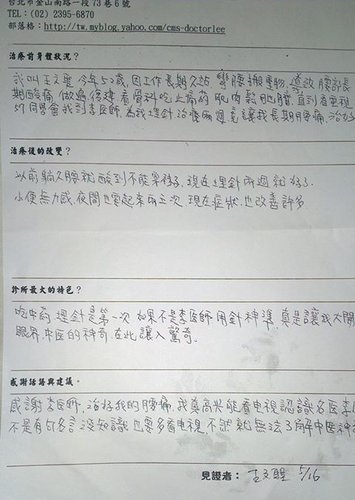 台北市金山南路一段73巷6號
TEL：(02) 2395-6870
部落格：http://tw.myblog.yahoo.com/cms-doctorlee
治療前身體狀況？
我叫王文 今年52歲 因工作長期久站 彎腰搬重物 導致腰部長
期酸痛 做 復健看骨科吃止痛藥 肌肉鬆弛 直到看電視
57 同學會 找到李醫師 為我埋針治療兩週 讓我長期腰痛 治好
治療後的改變？
以前躺久腰就酸到不能翠 現在埋針兩週就好了
小便無力感 夜間也要起來兩三次 現在症狀也改善許多
診所最大的特色？
吃中藥 埋針是第一次 如果不是李醫師用針神準 真是讓我大開
眼界 中醫的神奇 在此讓人驚奇
感謝話語與建議。
感謝李醫師 治好我的腰痛 我真高興能看電視認識名醫李
不是有句名言 沒知識也要多看電視 不然就無法了解中醫神
見證者： 王文 5/16